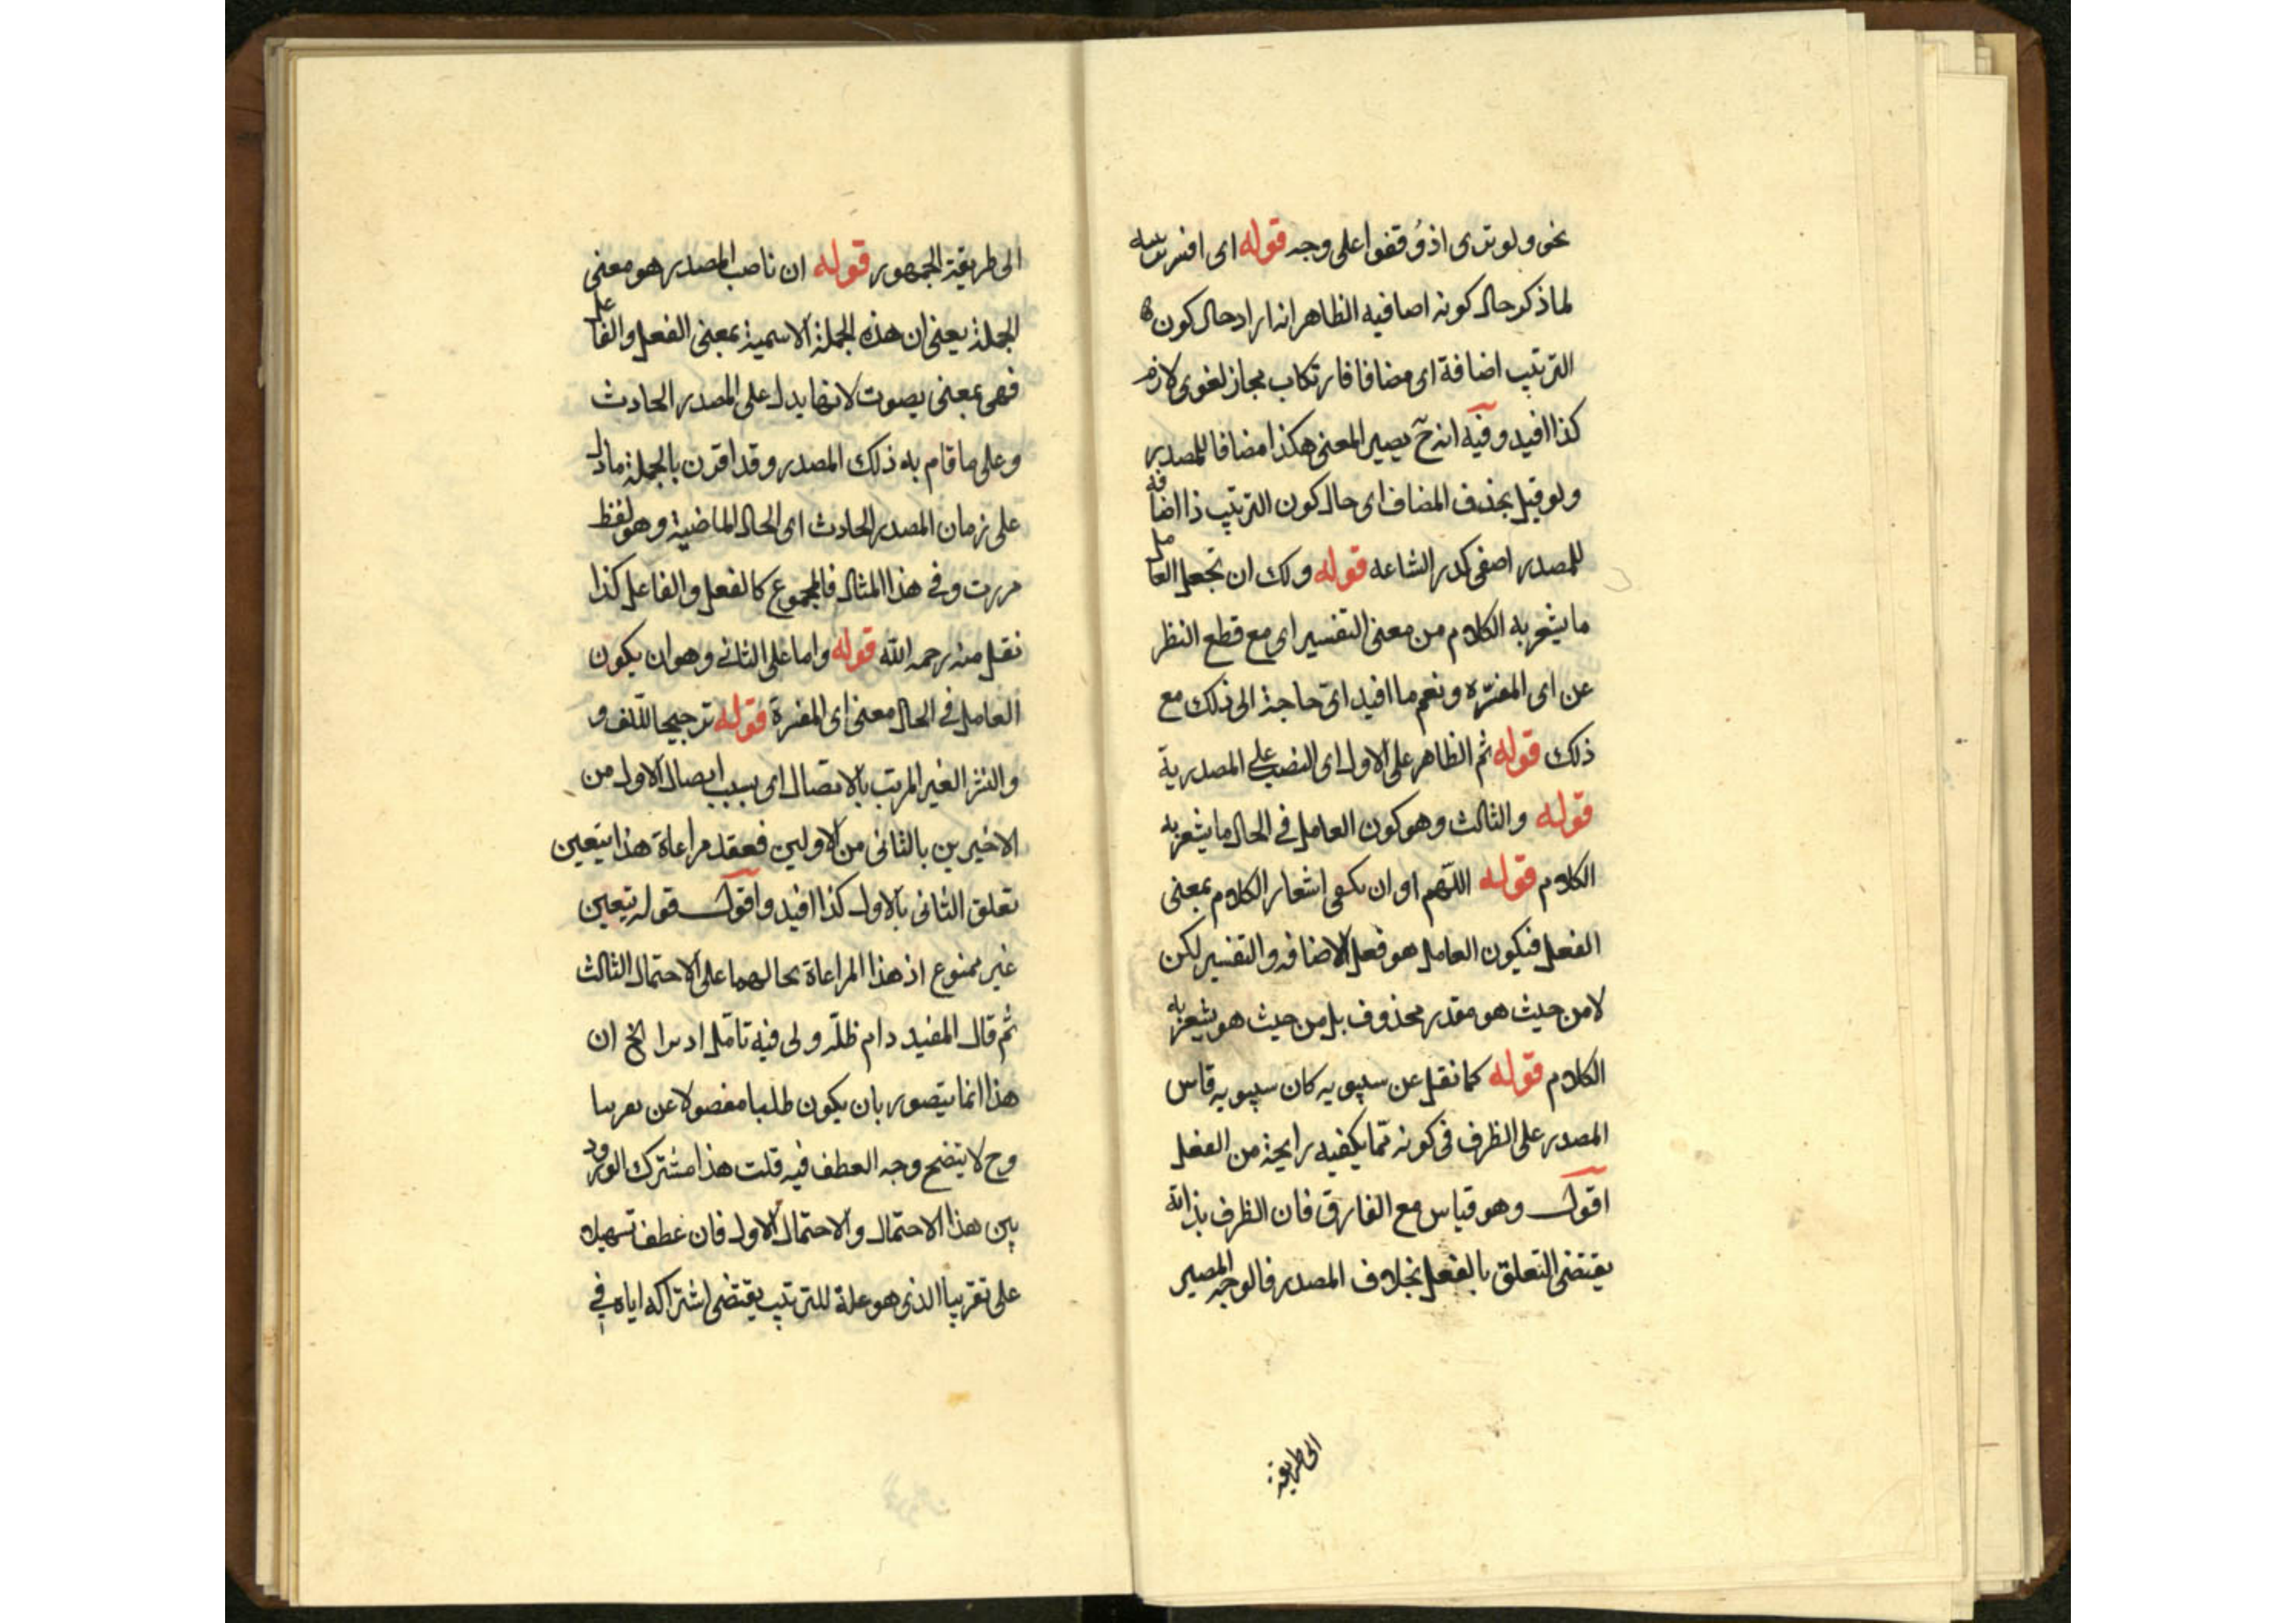 نحو ولو ترى اذ وُقفوا على وجه قوله اى افسر
لما ذكر حال كونه اضافيه الظاهر انه اراد حال كون
الترتيب اضافة اى مضافا فارتكاب مجاز لغوى لازم
كذا افيد وفيه انه ح يصير المعنى هكذا مضافا للمصدر
ولو قيل بحذف المضاف اى حال كون الترتيب ذا اضافة
للمصدر قوله ولك ان تجعل العامل
ما يشعر به الكلام من معنى التفسير اى مع قطع النظر
عن اى المفسّره ونعم ما افيد اىّ حاجة الى ذلك مع
ذلك قوله ثم الظاهر على الاول اى النصب على المصدرية
قوله والثالث وهو كون العامل فى الحال ما يشعر به
الكلام قوله اللّهم او ان يكفى اشعار الكلام بمعنى
الفعل فيكون العامل هو فعل الاضافه والتفسير لكن
لا من حيث هو مقدر محذوف بل من حيث هو يشعر به
الكلام قوله كما نقل عن سيبويه كان سيبويه قاس
المصدر على الظرف فى كونه مما يكفيه رايحة من الفعل
اقول وهو قياس مع الفارق فان الظرف بذاته
يقتضى التعلق بالفعل بخلاف المصدر فالوجه المصير
الى طريقة
الى طريقة الجمهور قوله ان ناصب المصدر هو معنى
الجملة يعنى ان هذه الجملة الاسمية بمعنى الفعل والفاعل
فهى بمعنى يصوت لانها يدل على المصدر الحادث
وعلى ما قام به ذلك المصدر وقد اقترن بالجملة ما دل
على زمان المصدر الحادث اى الحال الماضية وهو لفظ
مررت وفى هذا المثال فالمجموع كالفعل والفاعل كذا
نقل منه رحمه الله قوله واما على الثانى وهو ان يكون
العامل فى الحال معنى اى المفسرة قوله ترجيحا للّف و
والنشر الغير المرتب بالاتصال اى بسبب ايصال الاول من
الاخيرين بالثانى من الاولين فعقد مراعاة هذا يتعين
تعلق الثانى بالاول كذا افيد واقول قوله يتعين
غير ممنوع اذ هذا المراعاة بحالهما على الاحتمال الثالث
ثم قال المفيد دام ظلّه ولى فيه تامّل ان
هذا انما يتصور بان يكون طلبا مفصولا عن تقريبا
وح لا يتضح وجه العطف فيه قلت هذا مشترك الورود
بين هذا الاحتمال والاحتمال الاول فان عطف تسهيلا
على تقريبا الذى هو علة للترتيب يقتضى اشتراكه اياه فى